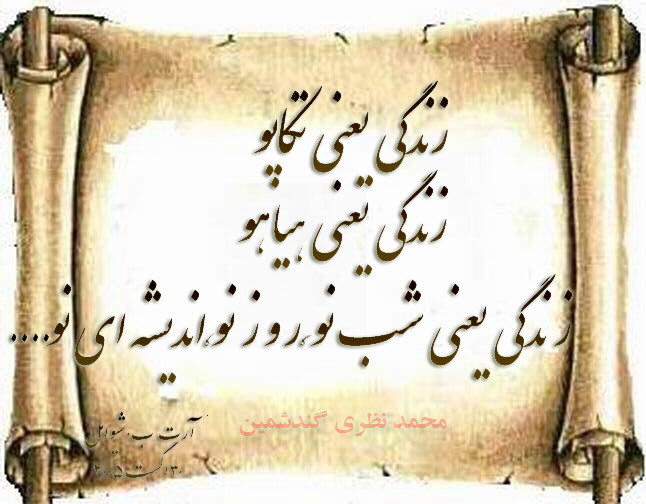 زندگی یعنی تکاپو
زندگی یعنی هیاهو
زندگی یعنی شب نو، روز نو، اندیشه ای نو....
محمد نظری گندشمین
آرت ب